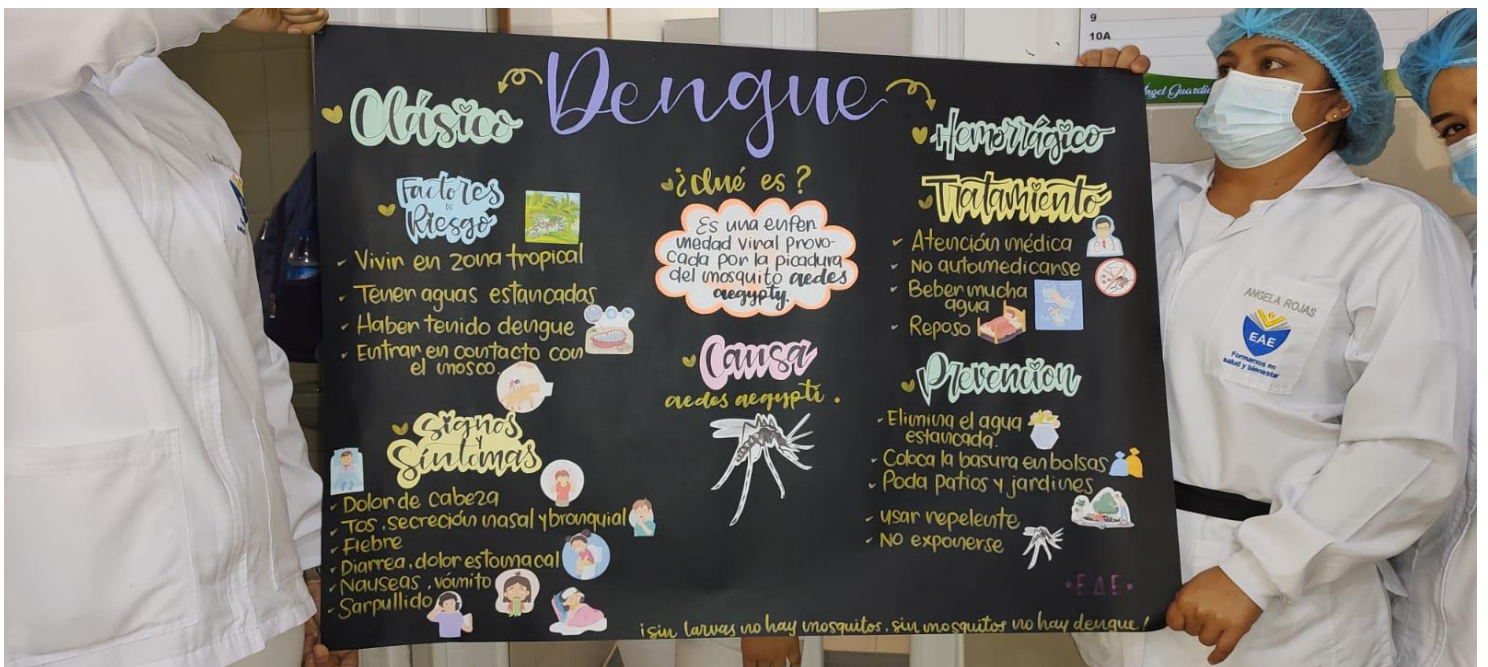 Dengue
Clásico
Hemorrágico
Factores
DE
Riesgo
Vivir en zona tropical
Tener aguas estancadas
Haber tenido dengue
Entrar en contacto con
el mosco.
Signos
y
Síntomas
Dolor de cabeza
Tos, secreción nasal y bronquial
Fiebre
Diarrea, dolor estomacal
Nauseas, vómito
Sarpullido
¿Qué es?
Es una enfer
medad viral provo-
cada por la picadura
del mosquito aedes
aegypty.
Causa
aedes aegypti.
Tratamiento
Atención médica
No automedicarse
Beber mucha
agua
Reposo
Prevencion
Elimina el agua
estancada.
Coloca la basura en bolsas
Poda patios y jardines
usar repelente
No exponerse
•EAE•
¡sin larvas no hay mosquitos, sin mosquitos no hay dengue!
9
10A
ANGELA ROJAS
EAE
Formamos en
salud y bienestar